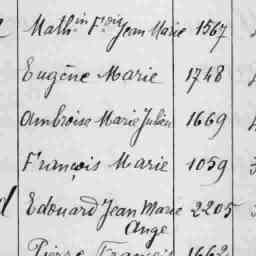 Math.in F.ois Jean Marie 1567
Eugène Marie 1748
Ambroise Marie Julien 1669
François Marie 1059
Edouard Jean Marie 2205
Ange
Pierre François 1662